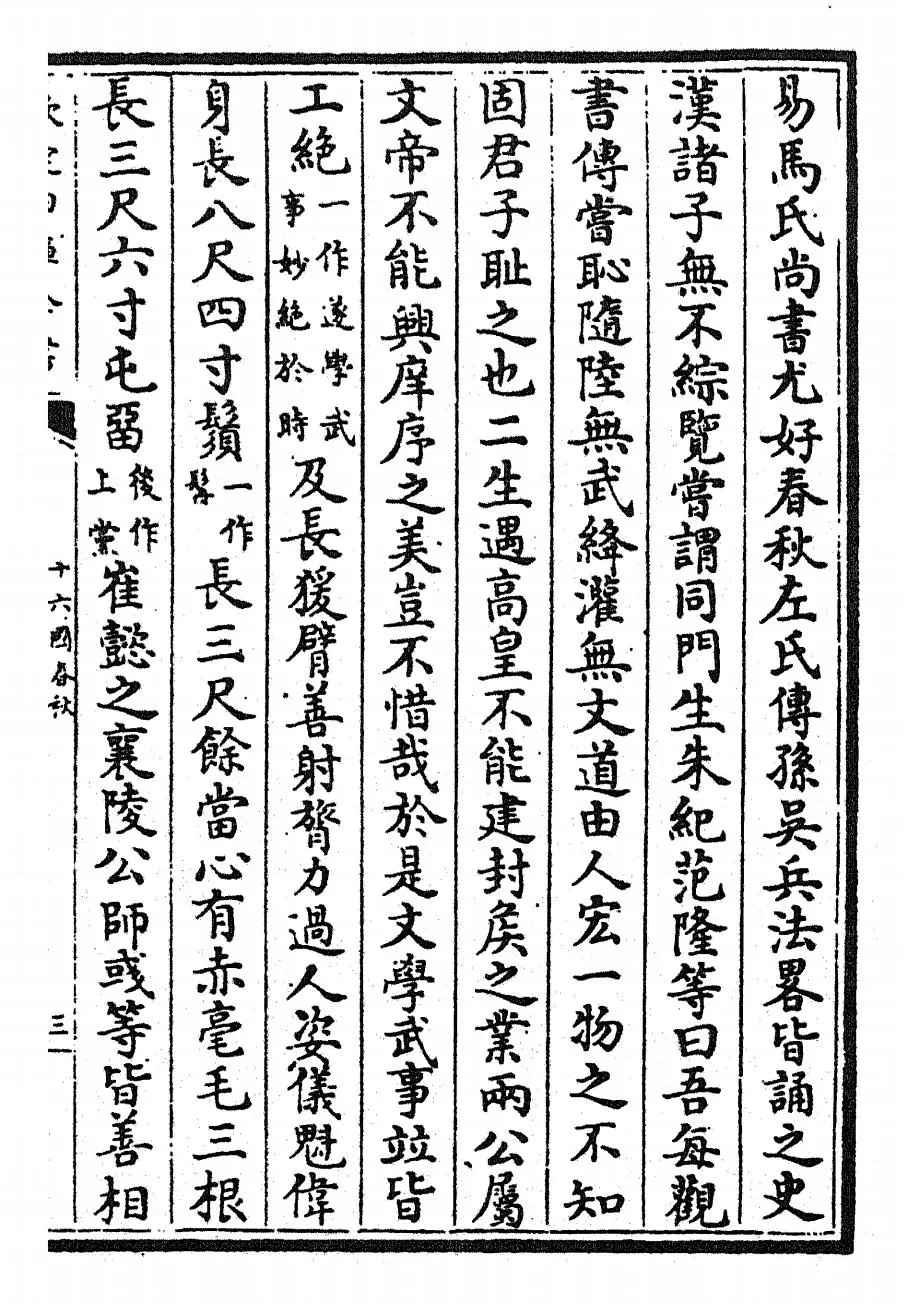 易馬氏尚書尤好春秋左氏傳孫吳兵法畧皆誦之史
漢諸子無不綜覽嘗謂同門生朱紀范隆等曰吾每觀
書傳嘗恥隨陸無武絳灌無文道由人宏一物之不知
固君子恥之也二生遇高皇不能建封侯之業兩公屬
文帝不能興庠序之美豈不惜哉於是文學武事竝皆
工絕一作遂學武事妙絕於時及長猨臂善射膂力過人姿儀魁偉
身長八尺四寸鬚一作髯長三尺餘當心有赤毫毛三根
長三尺六寸屯留後作上黨崔懿之襄陵公師彧等皆善相
十六國春秋
三